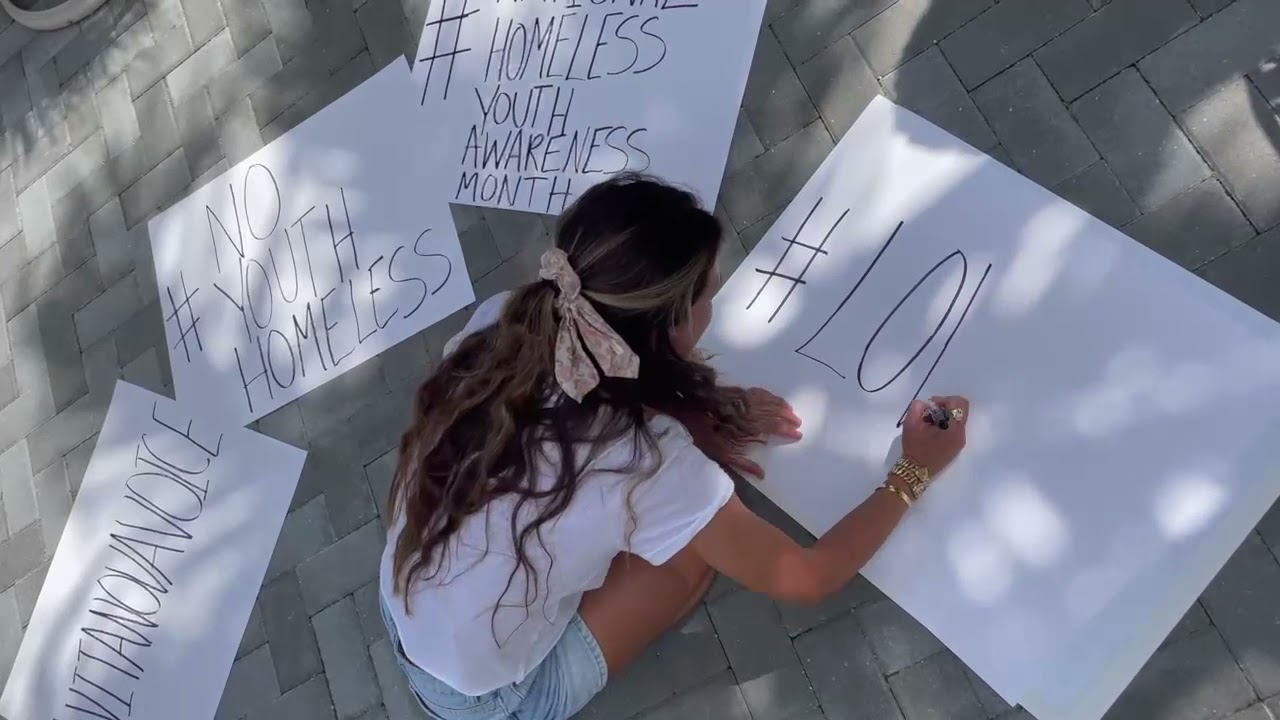 # NATIONAL
HOMELESS
YOUTH
AWARENESS
MONTH
NO
# YOUTH
HOMELESS
VITANOVAVOICE
#LO